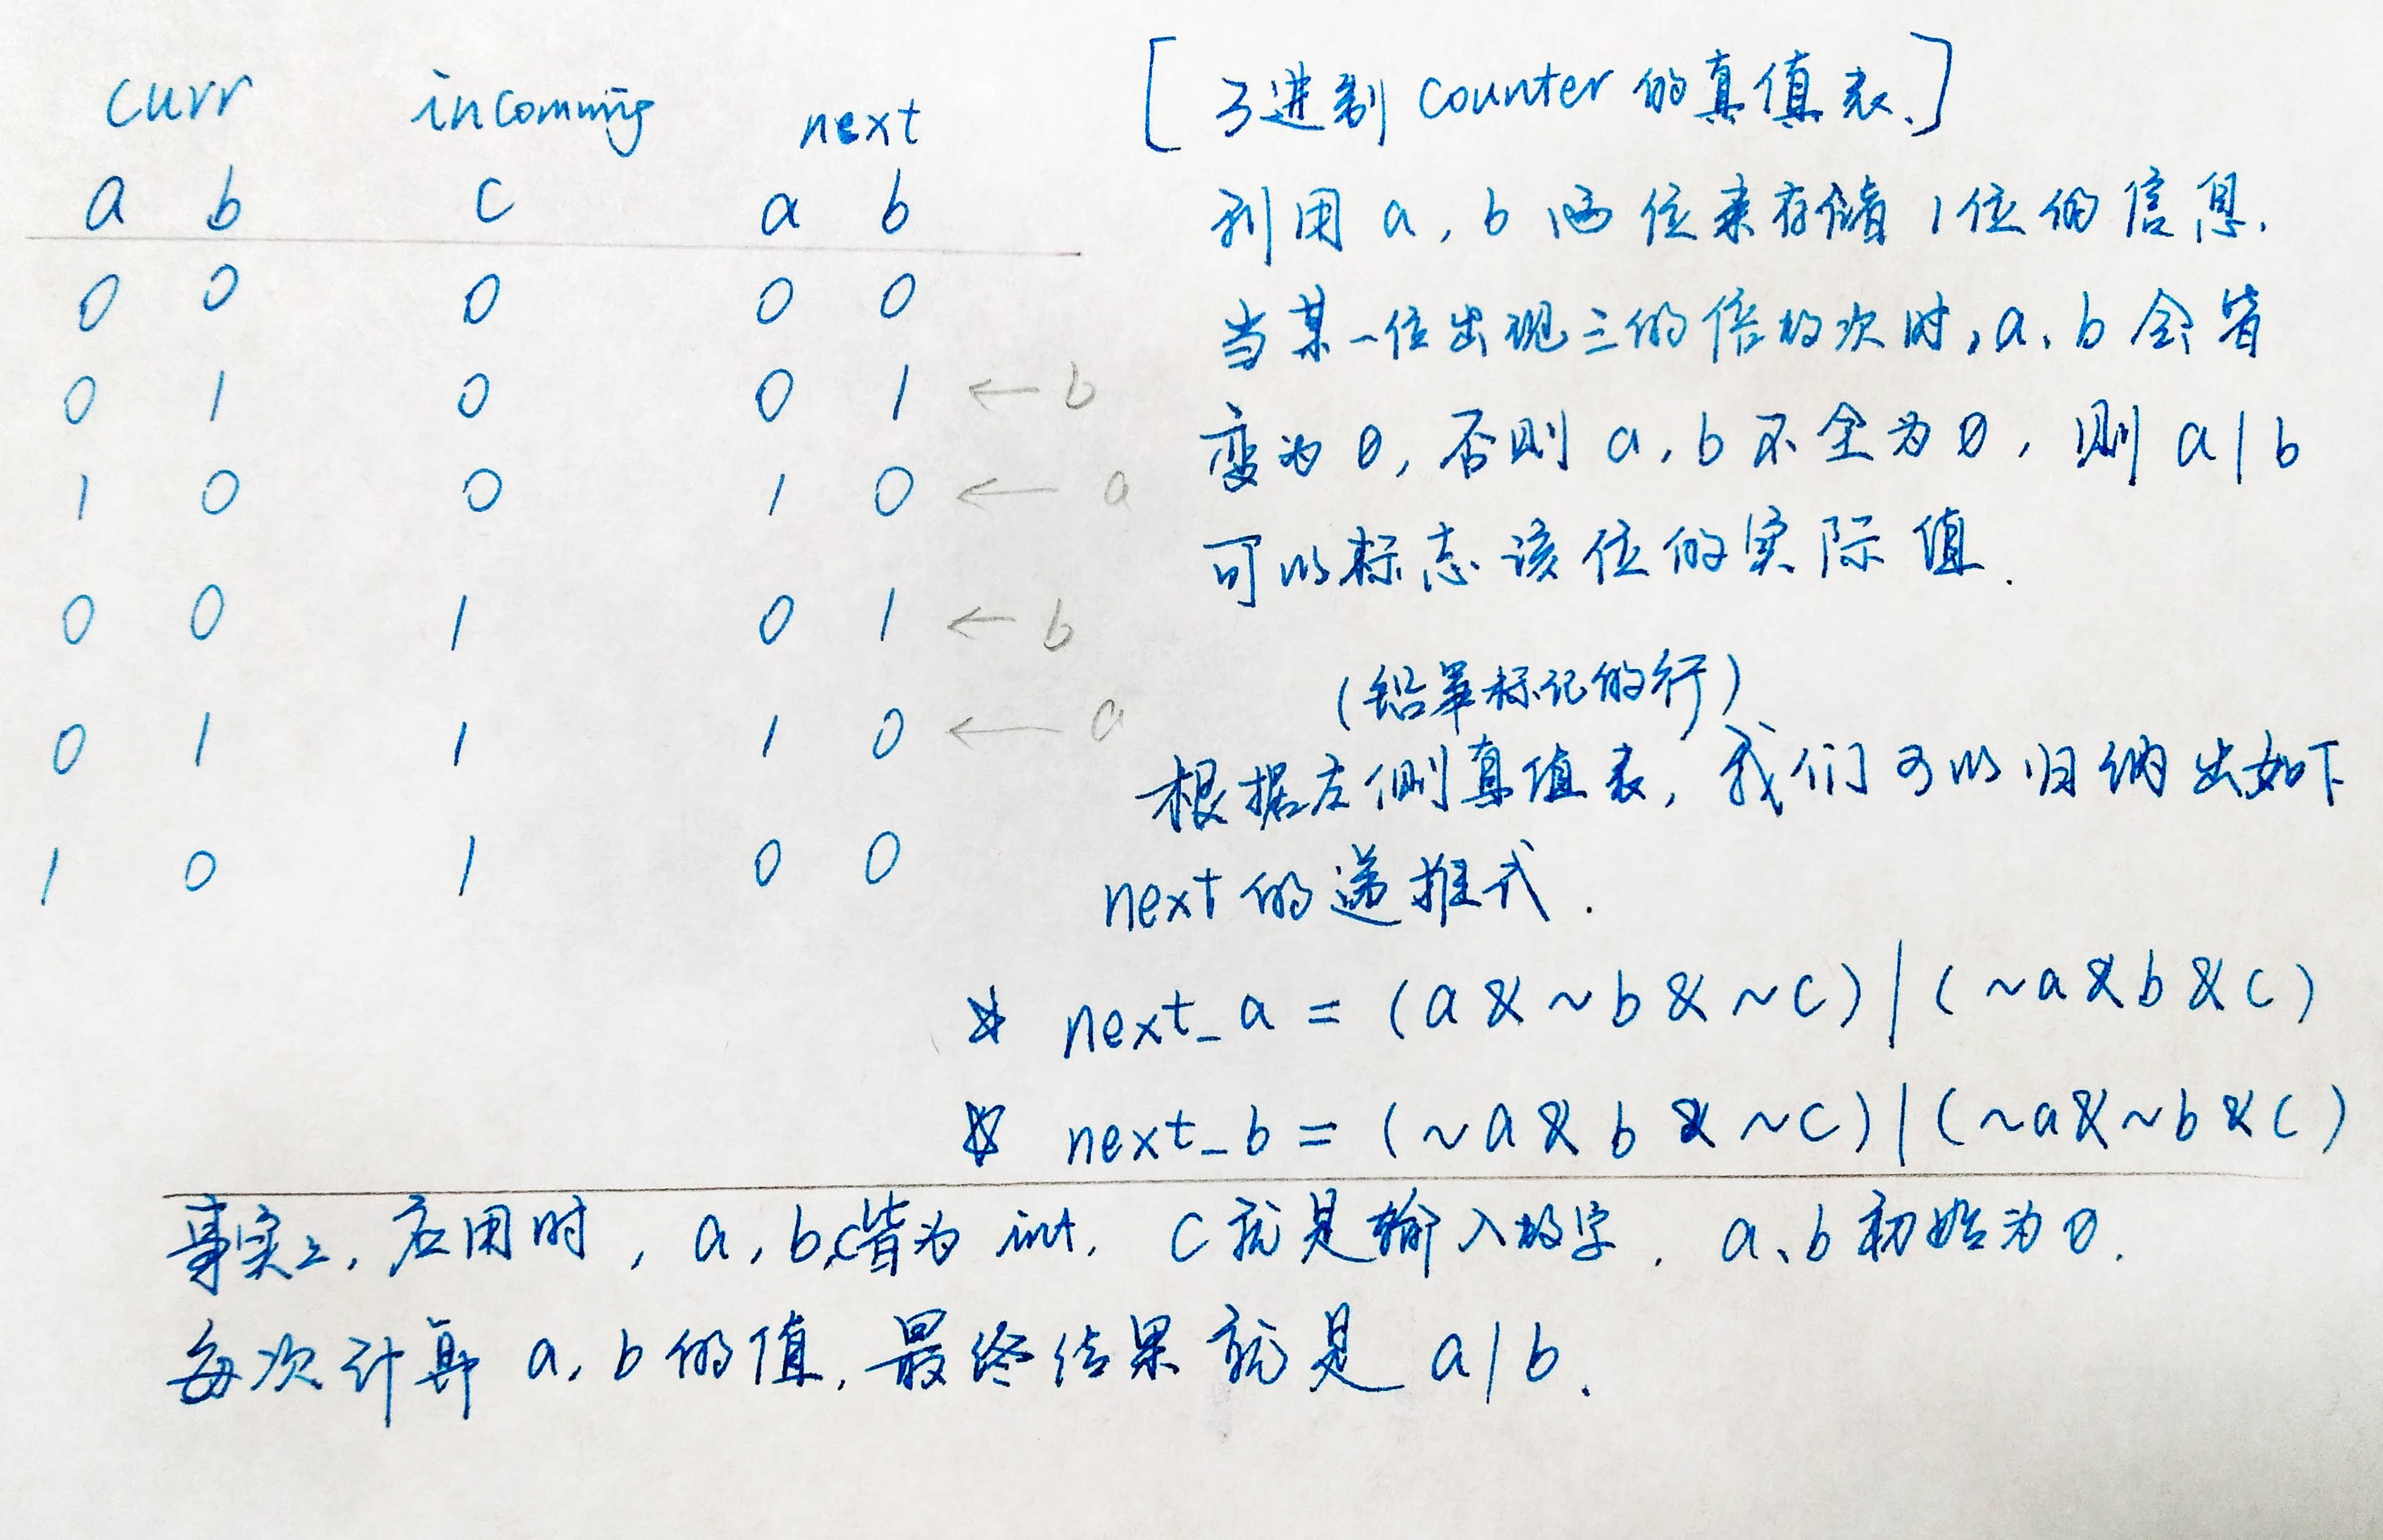 curr incoming next
a b c a b
0 0 0 0 0
0 1 0 0 1 ← b
1 0 0 1 0 ← a
0 0 1 0 1 ← b
0 1 1 1 0 ← a
1 0 1 0 0
[3进制 counter 的真值表.]
利用 a, b 两位来存储 1位的信息.
当某一位出现三的倍数次时, a、b 会皆
变为 0, 否则 a, b 不全为 0, 则 a | b
可以标志该位的实际值.
(铅笔标记的行)
根据左侧真值表, 我们可以归纳出如下
next 的递推式.
* next_a = (a & ~b & ~c) | (~a & b & c)
* next_b = (~a & b & ~c) | (~a & ~b & c)
事实上, 应用时, a, b, c皆为 int. c 就是输入数字. a、b 初始为 0.
每次计算 a, b 的值, 最终结果就是 a | b.